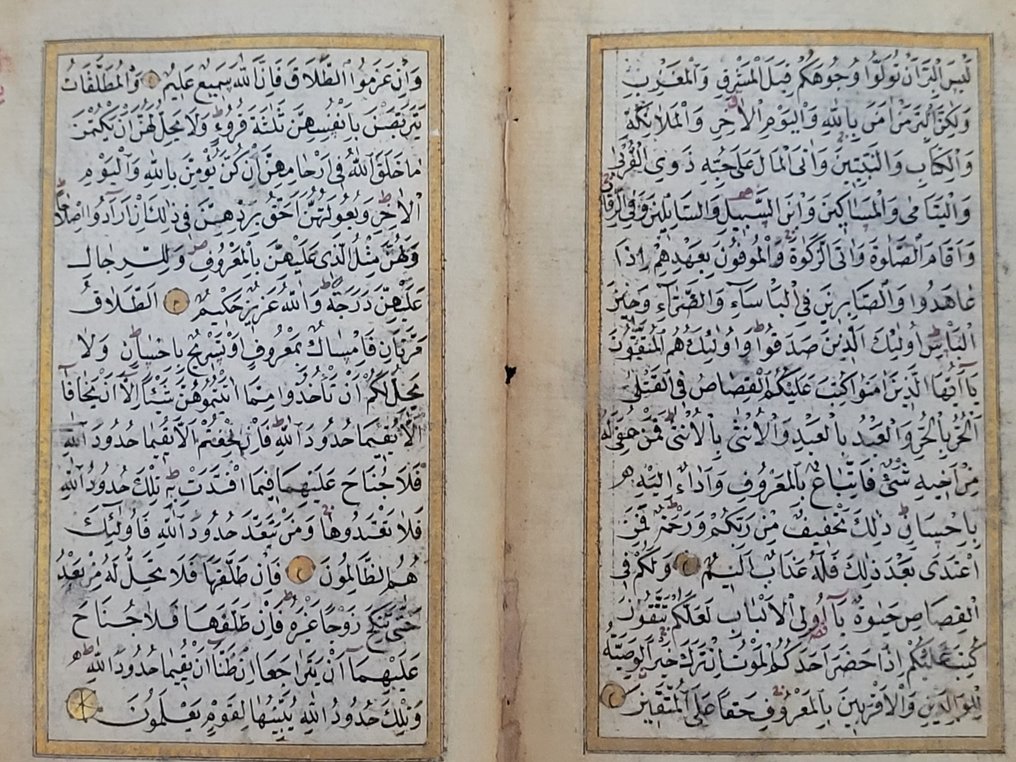 لَيْسَ الْبِرَّ اَنْ تُوَلُّوا وُجُوهَكُمْ قِبَلَ الْمَشْرِقِ وَالْمَغْرِبِ
وَلٰكِنَّ الْبِرَّ مَنْ اٰمَنَ بِاللّٰهِ وَالْيَوْمِ الْاٰخِرِ وَالْمَلٰئِكَةِ
وَالْكِتَابِ وَالنَّبِيِّينَ وَاٰتَى الْمَالَ عَلٰى حُبِّهِ ذَوِي الْقُرْبٰى
وَالْيَتَامٰى وَالْمَسَاكِينَ وَابْنَ السَّبِيلِ وَالسَّائِلِينَ وَفِي الرِّقَابِ
وَاَقَامَ الصَّلٰوةَ وَاٰتَى الزَّكٰوةَ وَالْمُوفُونَ بِعَهْدِهِمْ اِذَا
عَاهَدُوا وَالصَّابِرِينَ فِي الْبَاْسَاءِ وَالضَّرَّاءِ وَحِينَ
الْبَاْسِ اُولٰئِكَ الَّذِينَ صَدَقُوا وَاُولٰئِكَ هُمُ الْمُتَّقُونَ
يَا اَيُّهَا الَّذِينَ اٰمَنُوا كُتِبَ عَلَيْكُمُ الْقِصَاصُ فِي الْقَتْلٰى
اَلْحُرُّ بِالْحُرِّ وَالْعَبْدُ بِالْعَبْدِ وَالْاُنْثٰى بِالْاُنْثٰى فَمَنْ عُفِيَ لَهُ
مِنْ اَخِيهِ شَيْءٌ فَاتِّبَاعٌ بِالْمَعْرُوفِ وَاَدَاءٌ اِلَيْهِ
بِاِحْسَانٍ ذٰلِكَ تَخْفِيفٌ مِنْ رَبِّكُمْ وَرَحْمَةٌ فَمَنِ
اعْتَدٰى بَعْدَ ذٰلِكَ فَلَهُ عَذَابٌ اَلِيمٌ وَلَكُمْ فِي
الْقِصَاصِ حَيٰوةٌ يَا اُولِي الْاَلْبَابِ لَعَلَّكُمْ تَتَّقُونَ
كُتِبَ عَلَيْكُمْ اِذَا حَضَرَ اَحَدَكُمُ الْمَوْتُ اِنْ تَرَكَ خَيْرًا الْوَصِيَّةُ
لِلْوَالِدَيْنِ وَالْاَقْرَبِينَ بِالْمَعْرُوفِ حَقًّا عَلَى الْمُتَّقِينَ
وَاِنْ عَزَمُوا الطَّلَاقَ فَاِنَّ اللّٰهَ سَمِيعٌ عَلِيمٌ وَالْمُطَلَّقَاتُ
يَتَرَبَّصْنَ بِاَنْفُسِهِنَّ ثَلٰثَةَ قُرُوءٍ وَلَا يَحِلُّ لَهُنَّ اَنْ يَكْتُمْنَ
مَا خَلَقَ اللّٰهُ فِي اَرْحَامِهِنَّ اِنْ كُنَّ يُؤْمِنَّ بِاللّٰهِ وَالْيَوْمِ
الْاٰخِرِ وَبُعُولَتُهُنَّ اَحَقُّ بِرَدِّهِنَّ فِي ذٰلِكَ اِنْ اَرَادُوا اِصْلَاحًا
وَلَهُنَّ مِثْلُ الَّذِي عَلَيْهِنَّ بِالْمَعْرُوفِ وَلِلرِّجَالِ
عَلَيْهِنَّ دَرَجَةٌ وَاللّٰهُ عَزِيزٌ حَكِيمٌ اَلطَّلَاقُ
مَرَّتَانِ فَاِمْسَاكٌ بِمَعْرُوفٍ اَوْ تَسْرِيحٌ بِاِحْسَانٍ وَلَا
يَحِلُّ لَكُمْ اَنْ تَاْخُذُوا مِمَّا اٰتَيْتُمُوهُنَّ شَيْئًا اِلَّا اَنْ يَخَافَا
اَلَّا يُقِيمَا حُدُودَ اللّٰهِ فَاِنْ خِفْتُمْ اَلَّا يُقِيمَا حُدُودَ اللّٰهِ
فَلَا جُنَاحَ عَلَيْهِمَا فِيمَا افْتَدَتْ بِهِ تِلْكَ حُدُودُ اللّٰهِ
فَلَا تَعْتَدُوهَا وَمَنْ يَتَعَدَّ حُدُودَ اللّٰهِ فَاُولٰئِكَ
هُمُ الظَّالِمُونَ فَاِنْ طَلَّقَهَا فَلَا تَحِلُّ لَهُ مِنْ بَعْدُ
حَتّٰى تَنْكِحَ زَوْجًا غَيْرَهُ فَاِنْ طَلَّقَهَا فَلَا جُنَاحَ
عَلَيْهِمَا اَنْ يَتَرَاجَعَا اِنْ ظَنَّا اَنْ يُقِيمَا حُدُودَ اللّٰهِ
وَتِلْكَ حُدُودُ اللّٰهِ يُبَيِّنُهَا لِقَوْمٍ يَعْلَمُونَ